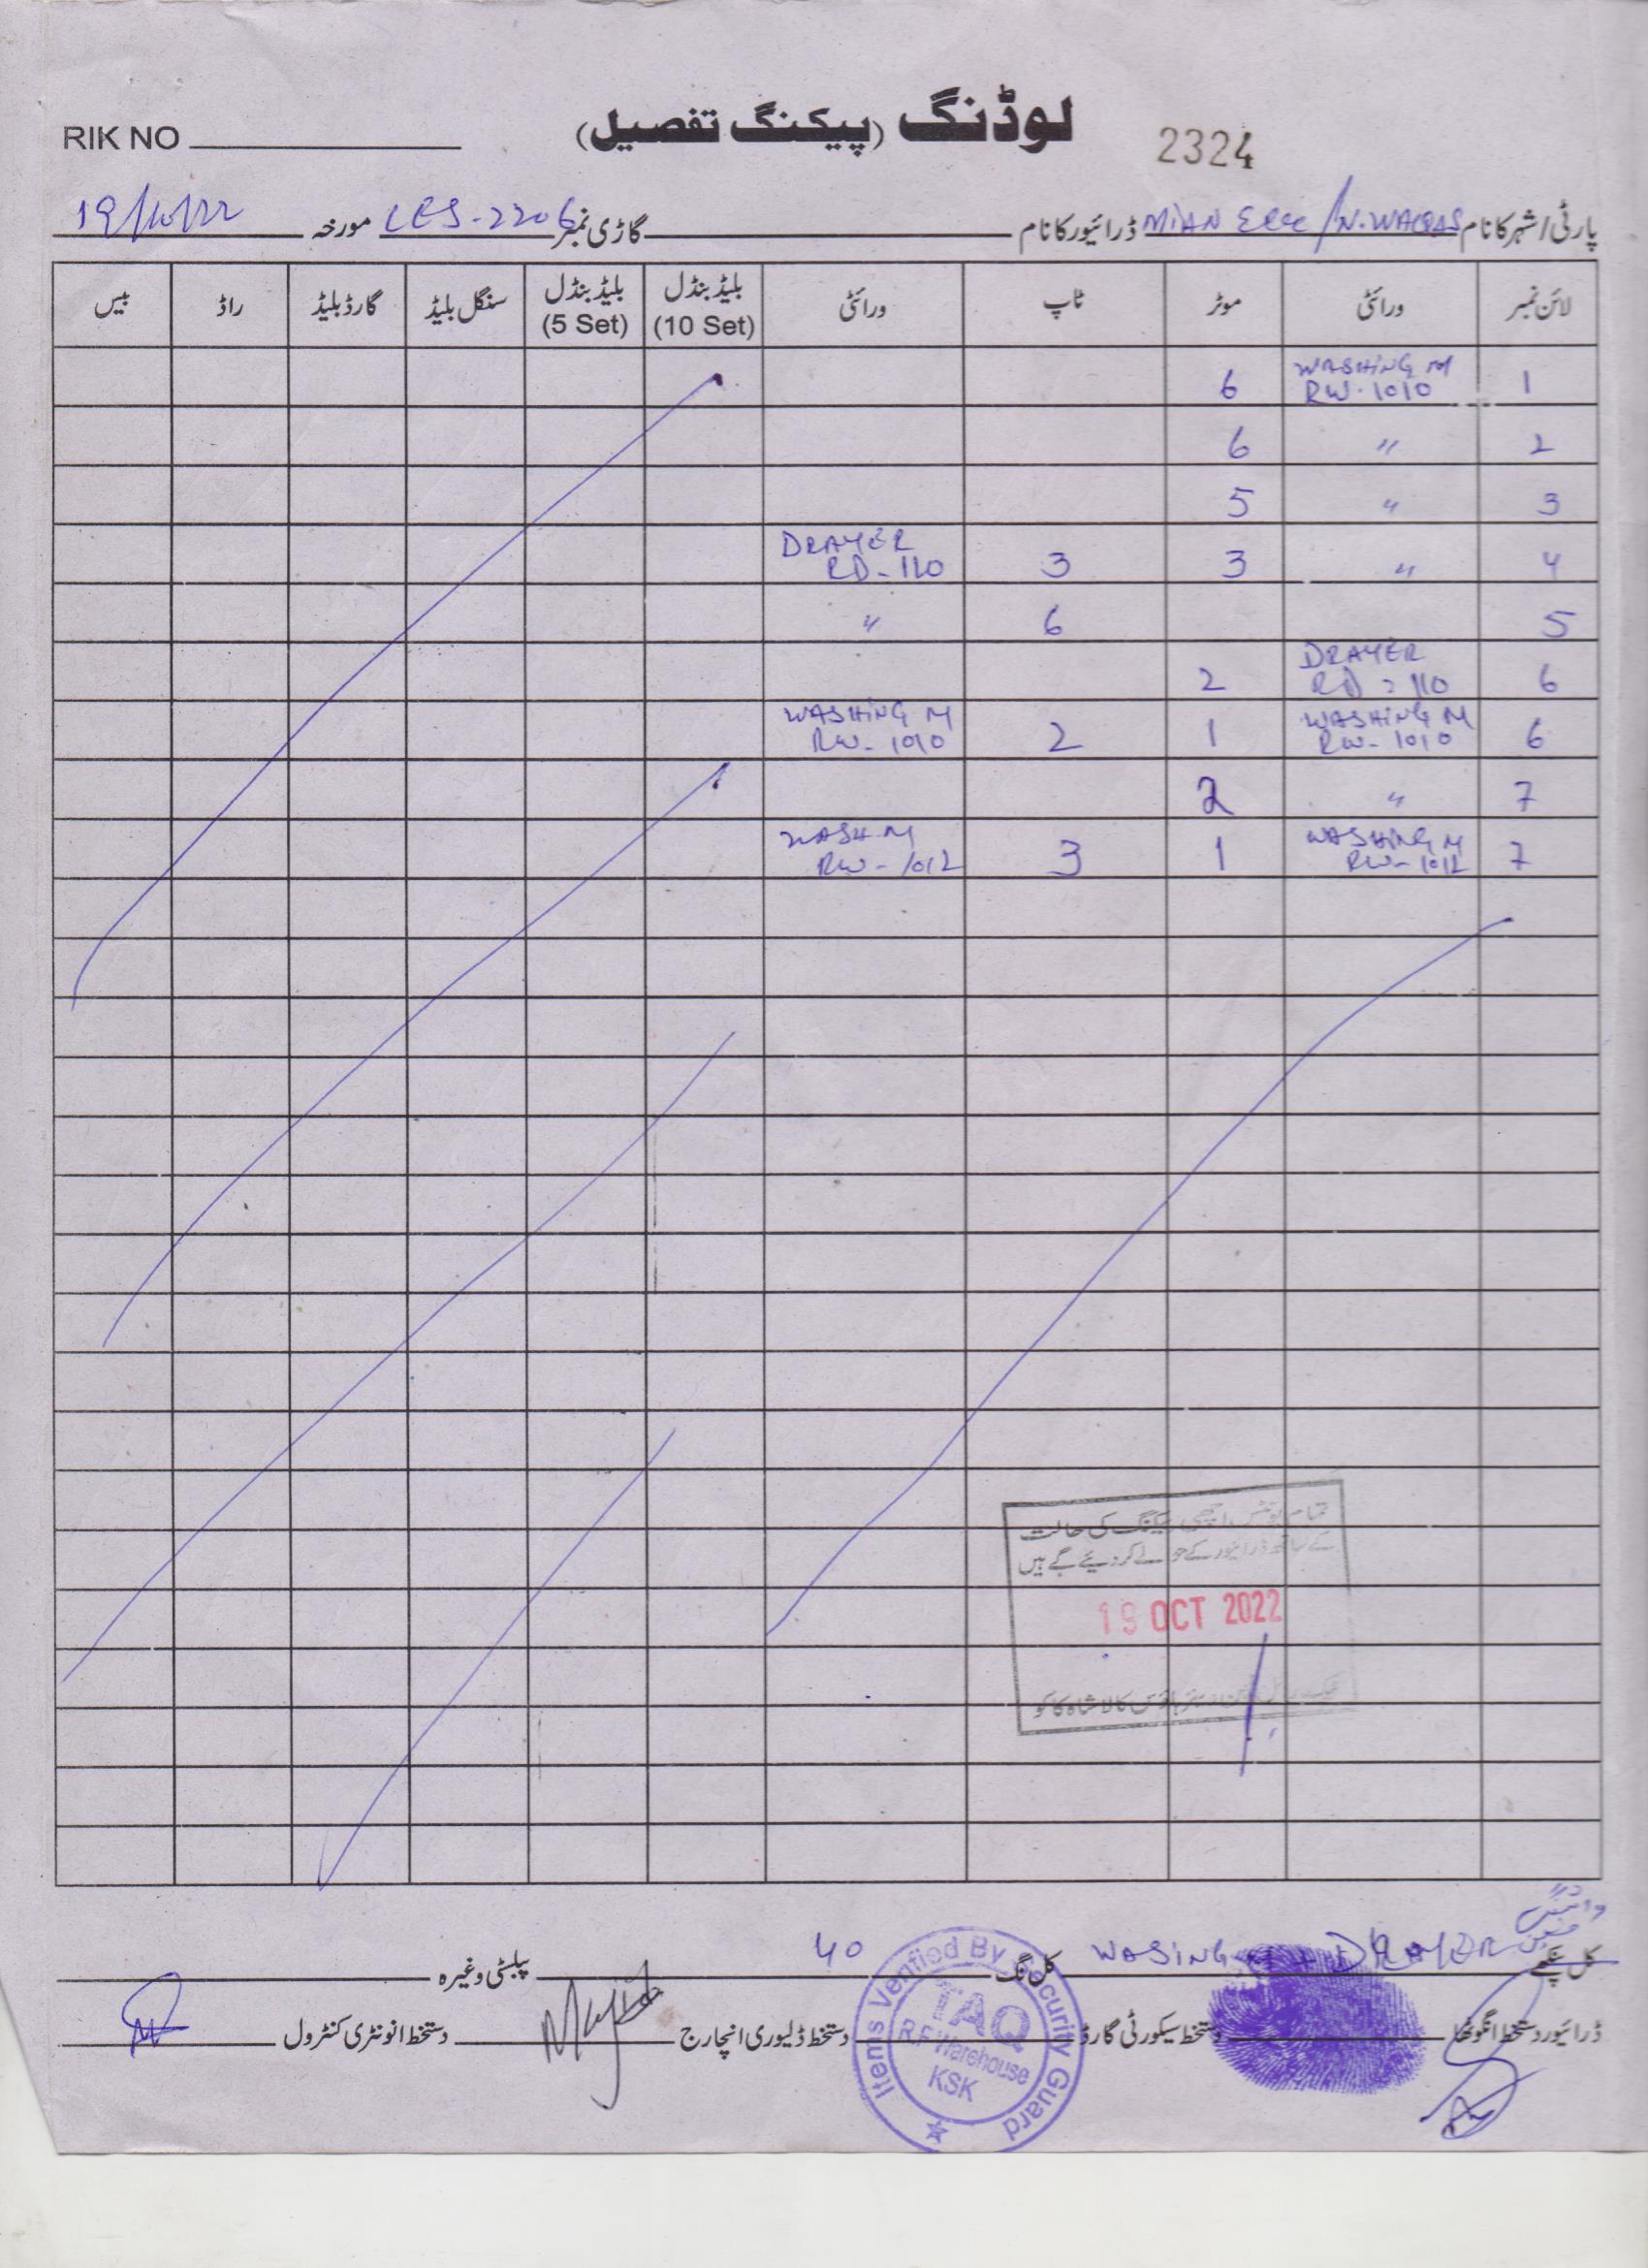 RIK NO لوڈنگ (پیکنگ تفصیل) 2324
پارٹی/شہر کا نام MIAN ELEC / N. WAQAS ڈرائیور کا نام گاڑی نمبر LES-2206 مورخہ 19/10/22
لائن نمبر ورائٹی موٹر ٹاپ ورائٹی بلیڈ بنڈل (10 Set) بلیڈ بنڈل (5 Set) سنگل بلیڈ گارڈ بلیڈ راڈ بیس
1 WASHING M RW-1010 6
2 " 6
3 " 5
4 " 3 3 DRAYER RD-110
5 6 "
6 DRAYER RD-110 2
6 WASHING M RW-1010 1 2 WASHING M RW-1010
7 " 2
7 WASHING M RW-1012 1 3 WASH M RW-1012
تمام یونٹس اچھی پیکنگ کی حالت
کے ساتھ ڈرائیور کے حوالے کر دیئے گے ہیں
19 OCT 2022
کالا شاہ کاکو
واشنگ
کل پنکھے WASING M + DRAYER کل نگ 40 پبلٹی وغیرہ
ڈرائیور دستخط انگوٹھا دستخط سیکورٹی گارڈ دستخط ڈلیوری انچارج دستخط انونٹری کنٹرول
Items Verified By Security Guard
TAQ
R.F Warehouse
KSK